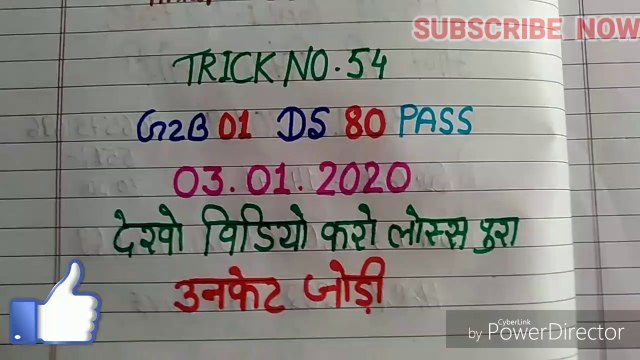 SUBSCRIBE NOW
TRICK NO. 54
GZB 01 DS 80 PASS
03.01.2020
देखो विडियो करो लोस्स पुरा
उनफेट जोड़ी
CyberLink
by PowerDirector